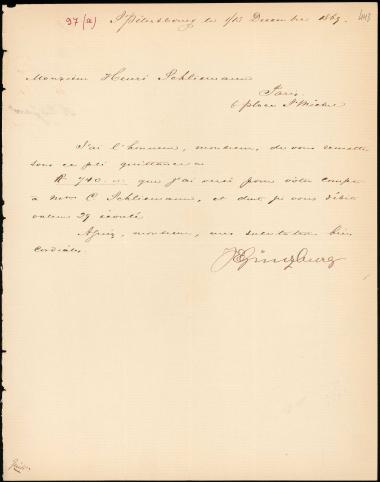 97 (a) St Pétersbourg le 1/13 Decembre 1869.
Monsieur Henri Schliemann
Paris
6 place St Michel
J'ai l'honneur, monsieur, de vous remettre
sous ce pli quittance
R. 740. que j'ai versé pour votre compte
à Mme C Schliemann, et dont je vous débite
valeur 29 écoulé
Agréez, monsieur, mes salutations bien
cordiales.
J E Günzburg